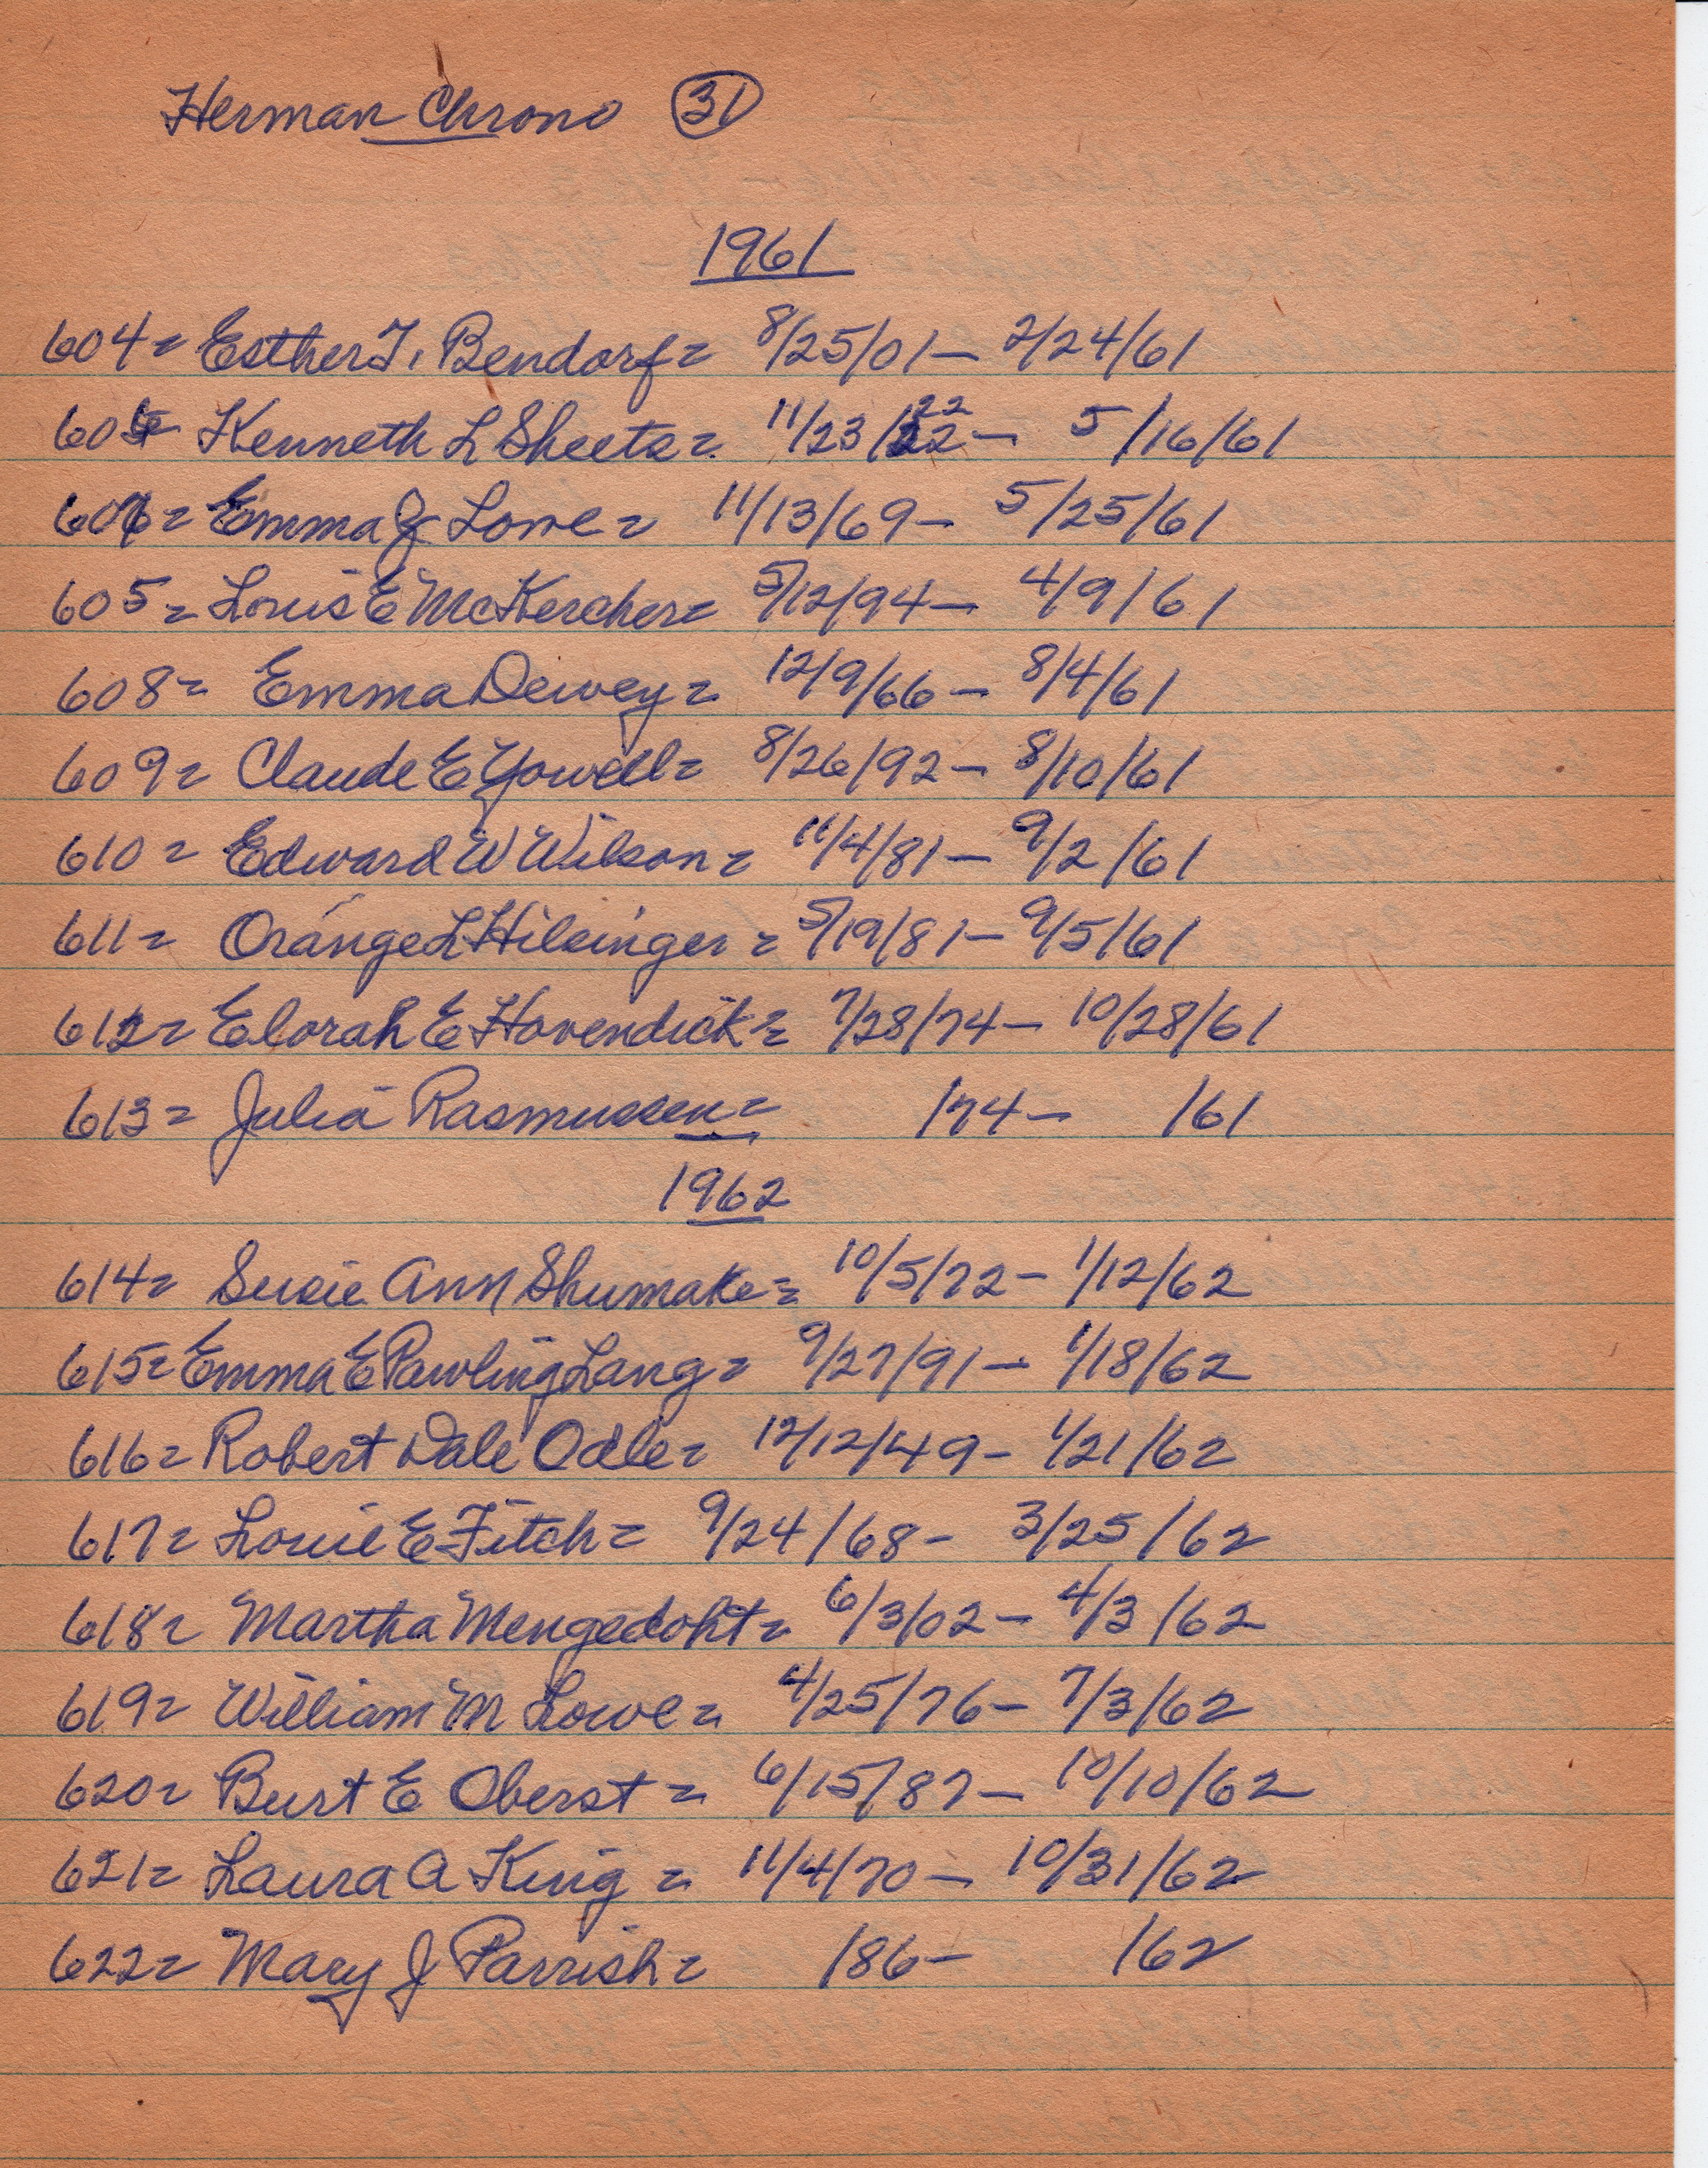 Herman Chrono 31
1961
604= Esther F. Bendorf= 8/25/01 - 2/24/61
Kenneth L Sheets= 11/23/22 - 5/16/61
Emma J Lowe= 11/13/69 - 5/25/61
605= Louis E McKercher= 5/12/94 - 4/9/61
608= Emma Dewey= 12/9/66 - 8/4/61
609= Claude E Yowell= 8/26/92 - 8/10/61
610= Edward W Wilson= 11/4/81 - 9/2/61
611= Orange L Hilsinger= 5/19/81 - 9/5/61
612= Elorah E Hovendick= 7/28/74 - 10/28/61
613= Julia Rasmussen= /74 - /61
1962
614= Susie Ann Shumake= 10/5/72 - 1/12/62
615= Emma E Pawling Lang= 9/27/91 - 1/18/62
616= Robert Dale Odle= 12/12/49 - 1/21/62
617= Louie E Fitch= 9/24/68 - 3/25/62
618= Martha Mengedoht= 6/3/02 - 4/3/62
619= William M Lowe= 4/25/76 - 7/3/62
620= Burt E Oberst= 6/15/87 - 10/10/62
621= Laura A King= 11/4/70 - 10/31/62
622= Mary J Parrish= /86 - /62